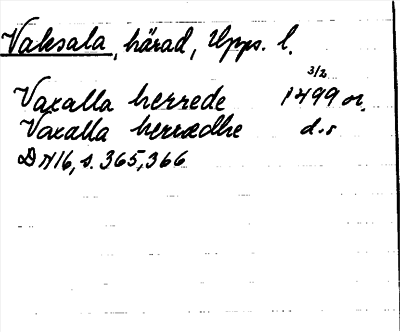 Vaksala, härad, Upps. l.
3/2
Vaxalla herrede 1499 or.
Vaxalla herrædhe d.s
DN 16, s. 365, 366